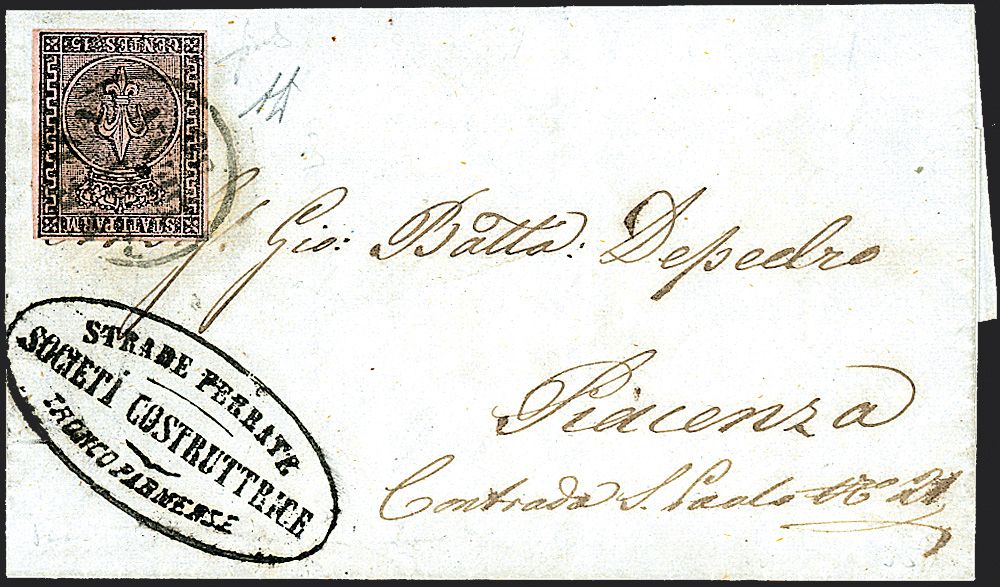 CENTES. 15
STATI PARM
Gio: Batta: Depedro
Piacenza
Contrada S. Paolo No 21
STRADE FERRATE
SOCIETÀ COSTRUTTRICE
TRONCO PARMENSE